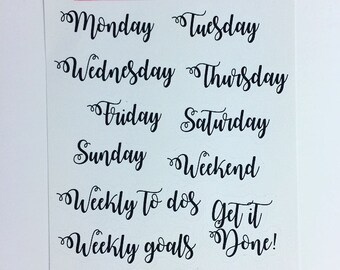 Monday Tuesday
Wednesday Thursday
Friday Saturday
Sunday Weekend
Weekly to dos Get it
Weekly goals Done!